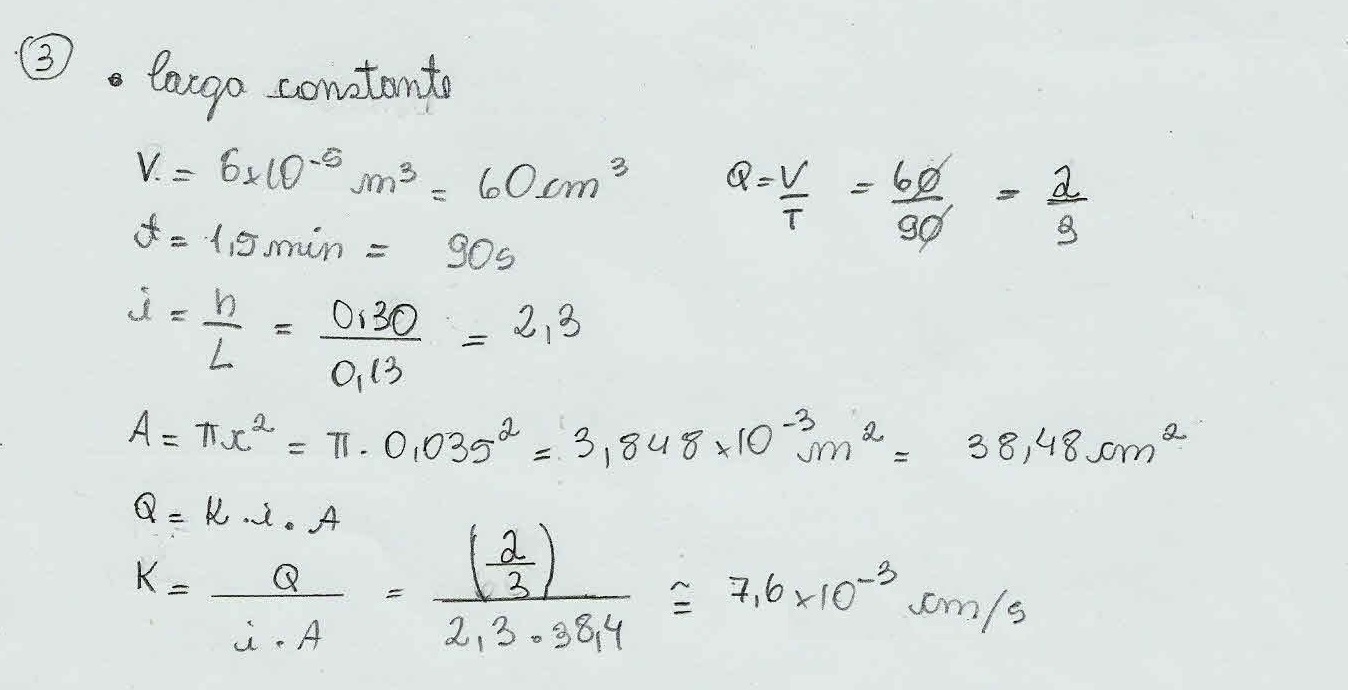 ③ • carga constante
V. = 6x10⁻⁵ m³ = 60cm³ Q = V/T = 60/90 = 2/3
t = 1,5 min = 90s
i = h/L = 0,30/0,13 = 2,3
A = πr² = π . 0,035² = 3,848 x 10⁻³ m² = 38,48 cm²
Q = K . i . A
K = Q/(i . A) = (2/3)/(2,3 . 38,4) ≅ 7,6 x 10⁻³ cm/s